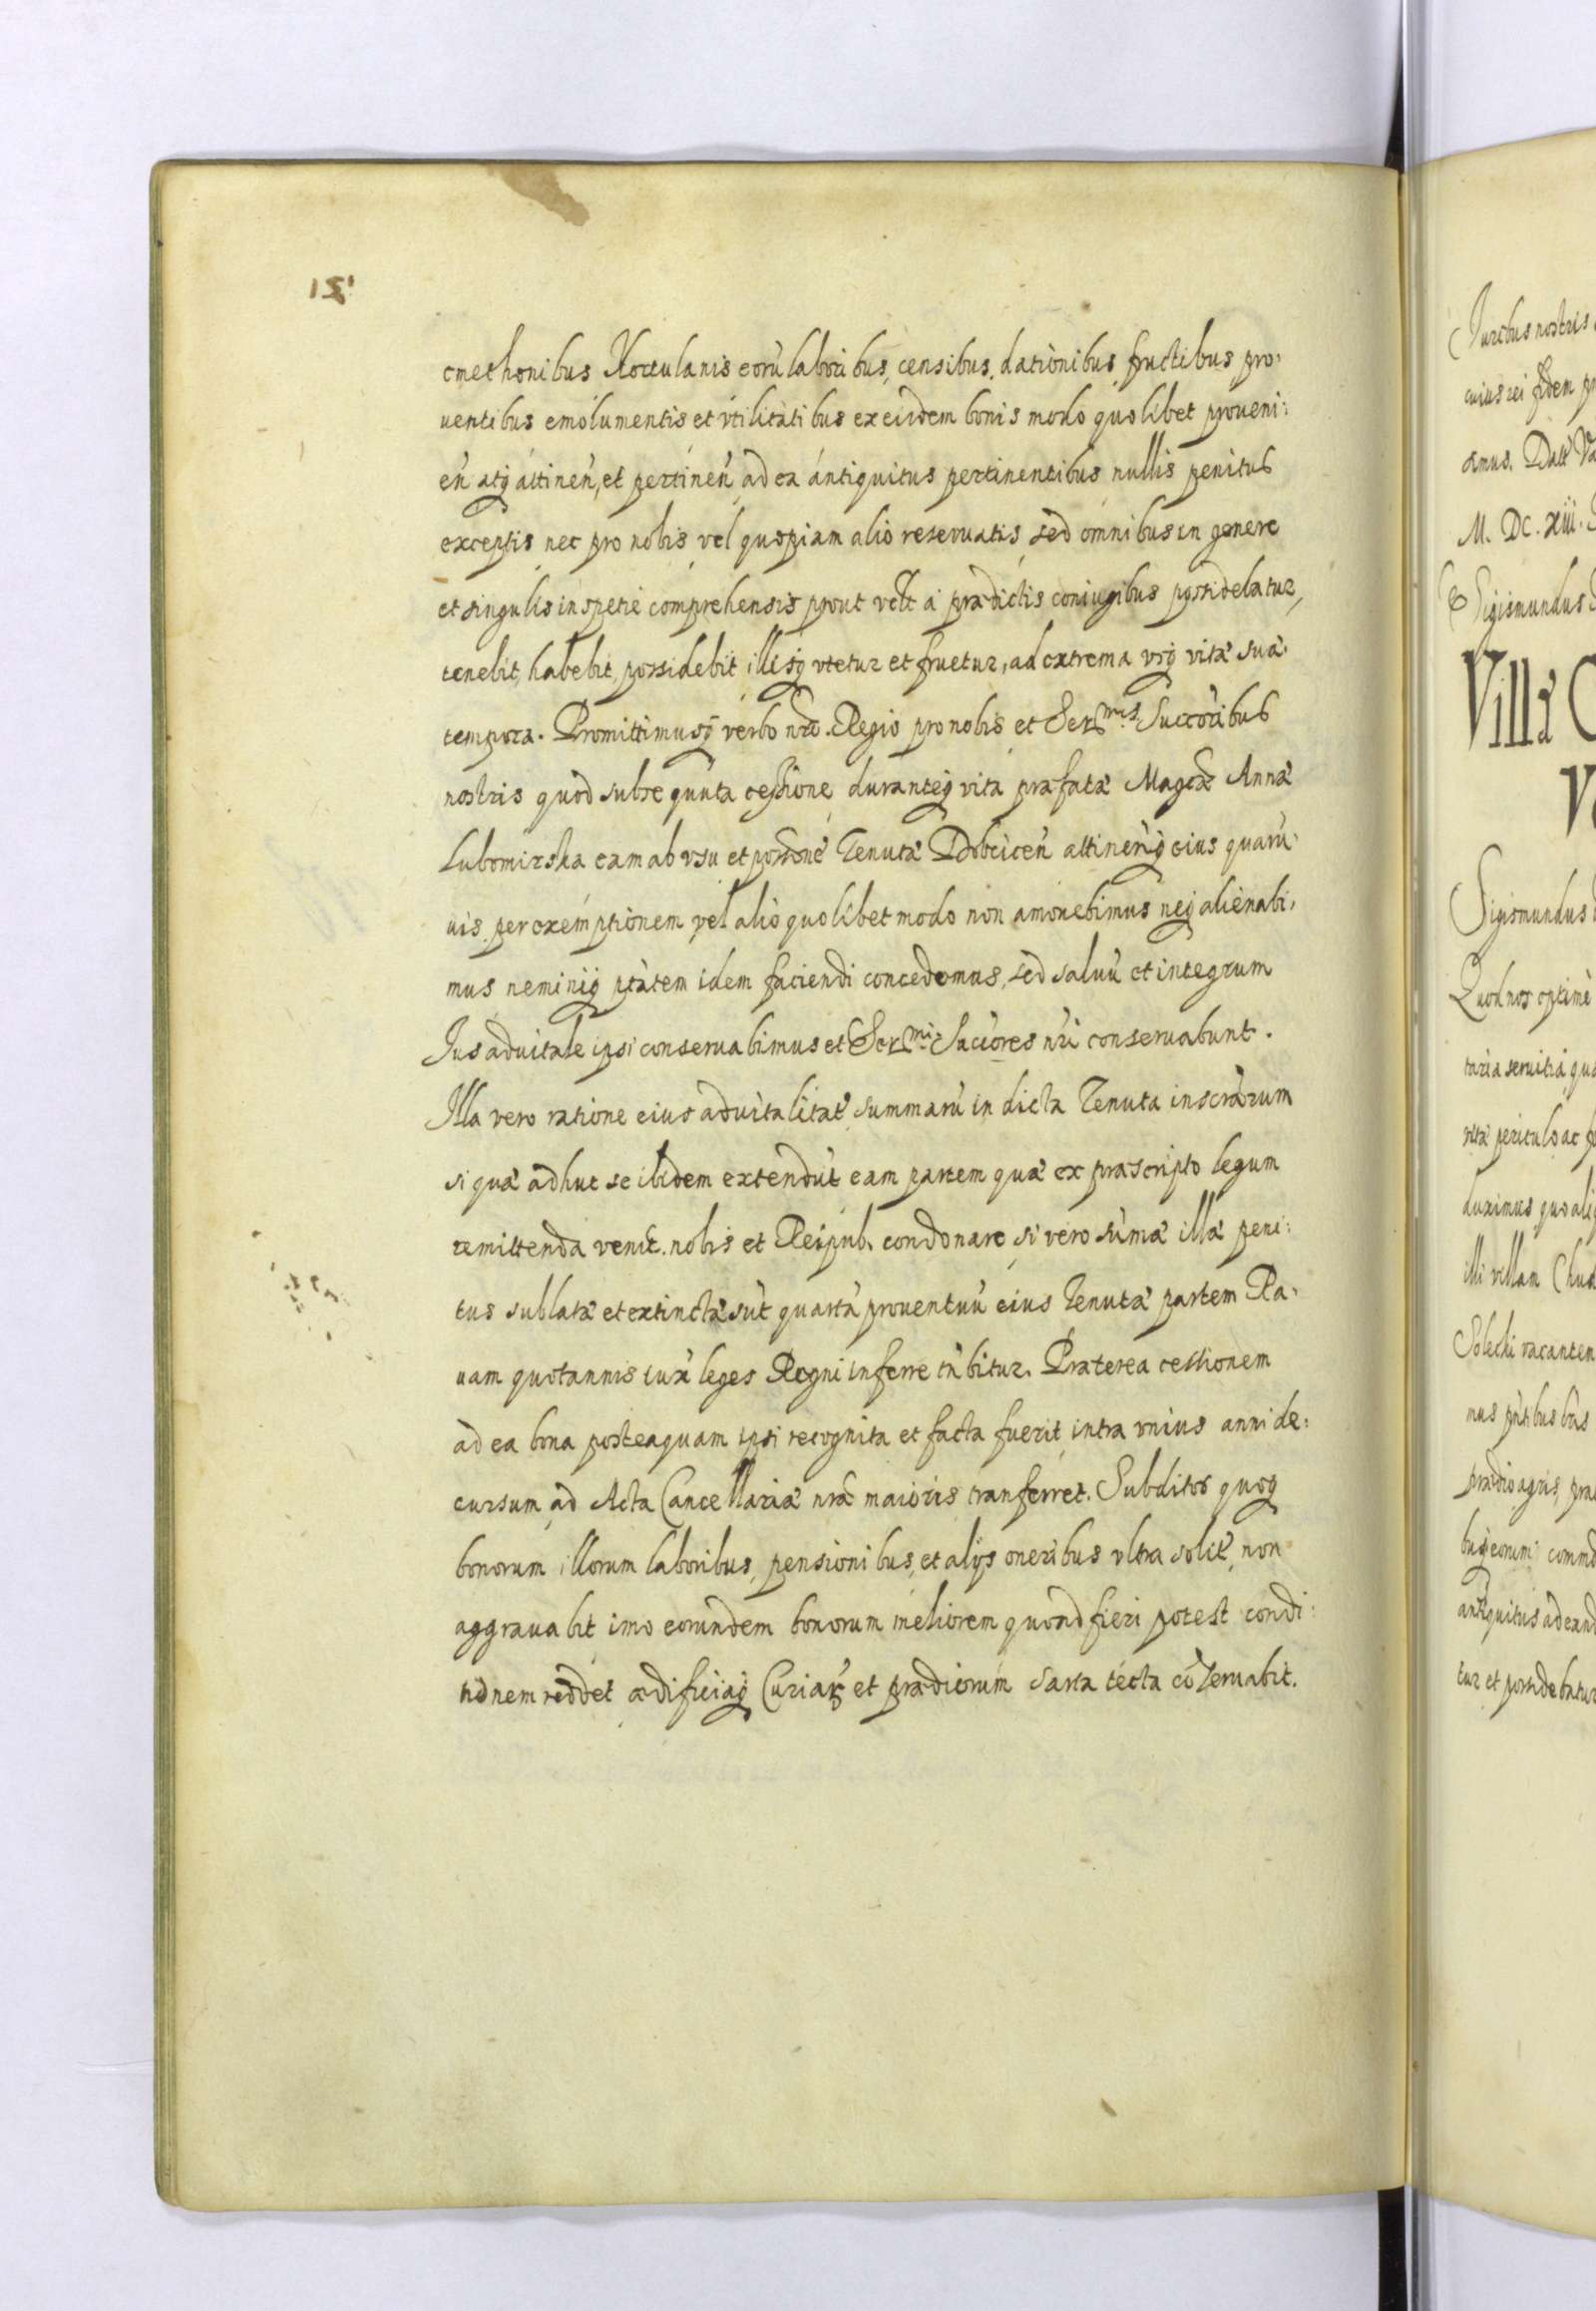 cmethonibus Hortulanis eorū laboribus, censibus, dationibus fructibus pro:
uentibus emolumentis et vtilitatibus ex eisdem bonis modo quolibet proueni:
eñ atq; attineñ, et pertineñ ad ea antiquitus pertinentibus nullis penitus
exceptis nec pro nobis vel quopiam alio reseruatis sed omnibus in genere
et singulis in spetie comprehensis prout vełt a prædictis coniugibus possidebatur,
tenebit, habebit, possidebit illisq; vtetur et fruetur, ad extrema vsq; vitæ suæ
tempora. Promittimusq; verbo nr̃o Regio pro nobis et Ser:mis Succoribus
nostris quod subsequuta cessione duranteq; vita præfatæ Magcæ Annæ
Lubomirska eam ab vsu et possone Tenutæ Dobcicen̄ attinen̄q; eius quarū:
uis per exemptionem vel alio quolibet modo non amouebimus neq; alienabi:
mus neminiq; ptatem idem faciendi concedemus, sed saluū et integrum
Ius aduitale ipsi conseruabimus et Ser:mi Succores nr̃i conseruabunt.
Illa vero ratione eius aduitalitat' summarū in dicta Tenuta inscrarum
si quæ adhuc se ibidem extendūt eam partem quæ ex præscripto legum
remittenda venit nobis et Reipub. condonare si vero sūmæ illæ peni:
tus sublatæ et extinctæ sūt quartā prouentuū eius Tenutæ partem Ra:
uam quotannis iuxa leges Regni inferre tn̄bitur. Præterea cessionem
ad ea bona posteaquam ipsi recognita et facta fuerit intra vnius anni de:
cursum ad Acta Cancellariæ nræ maioris tranferret. Subditos quoq;
bonorum illorum laboribus, pensionibus, et alijs oneribus vltra solit' non
aggrauabit imo eorundem bonorum meliorem quoad fieri potest condi:
tionem reddet ædificiaq; Curiarꝝ et prædiorum sarta tecta cōseruabit.
Iuribus nostris
cuius rei fidem
amus. Datt
M. DC. XIII.
Sigismundus
Villa
Sigismundus
Quod nos optime
taria seruitia
vitæ periculo ac
duximus
illi villam
Solecki vacantem
prædio agris,
antiquitus ad eand
tur et possidebatur